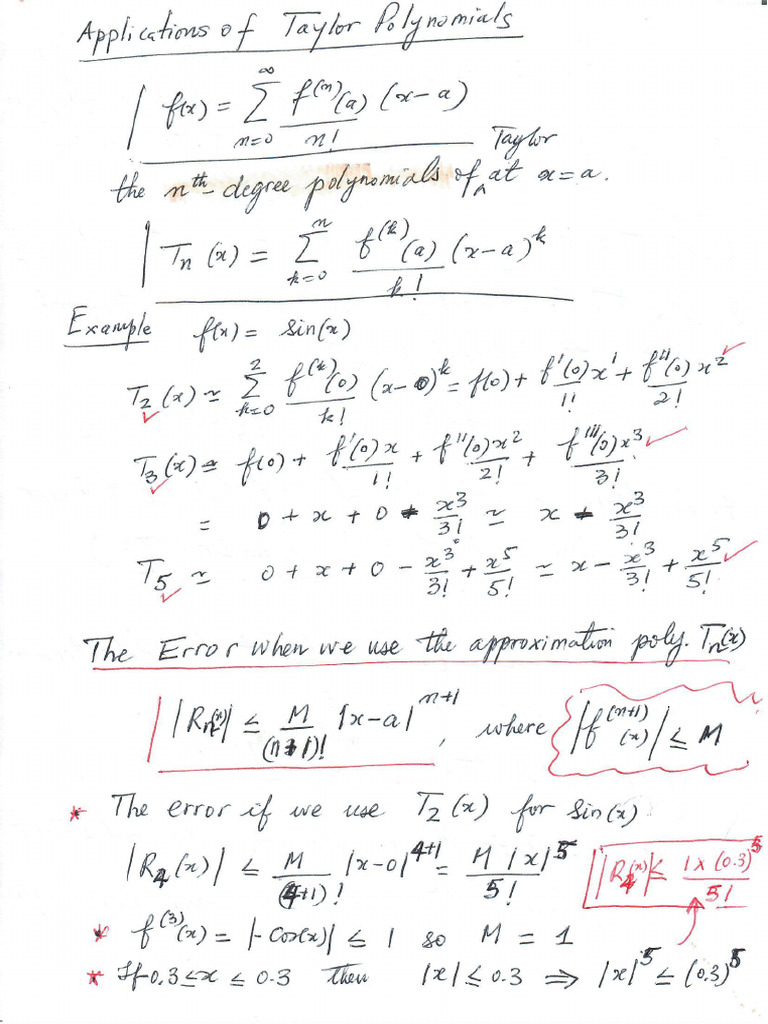 Applications of Taylor Polynomials
f(x) = ∑_{n=0}^{∞} f^{(n)}(a)/n! (x-a)
the nth-degree polynomials of Taylor at x=a.
T_n(x) = ∑_{k=0}^{n} f^{(k)}(a)/k! (x-a)^k
Example f(x) = sin(x)
T_2(x) ≃ ∑_{k=0}^{2} f^{(k)}(0)/k! (x-0)^k = f(0) + f'(0)x^1/1! + f''(0)x^2/2!
T_3(x) ≃ f(0) + f'(0)x/1! + f''(0)x^2/2! + f'''(0)x^3/3!
= 0 + x + 0 - x^3/3! ≃ x - x^3/3!
T_5 ≃ 0 + x + 0 - x^3/3! + x^5/5! ≃ x - x^3/3! + x^5/5!
The Error when we use the approximation poly. T_n(x)
|R_n(x)| ≤ M/(n+1)! |x-a|^{n+1}, where |f^{(n+1)}(x)| ≤ M
* The error if we use T_2(x) for sin(x)
|R_4(x)| ≤ M/(4+1)! |x-0|^{4+1} = M|x|^5/5! |R_4(x)| ≤ 1x(0.3)^5/5!
* f^{(3)}(x) = |-Cos(x)| ≤ 1 so M = 1
* If -0.3 ≤ x ≤ 0.3 then |x| ≤ 0.3 ⇒ |x|^5 ≤ (0.3)^5